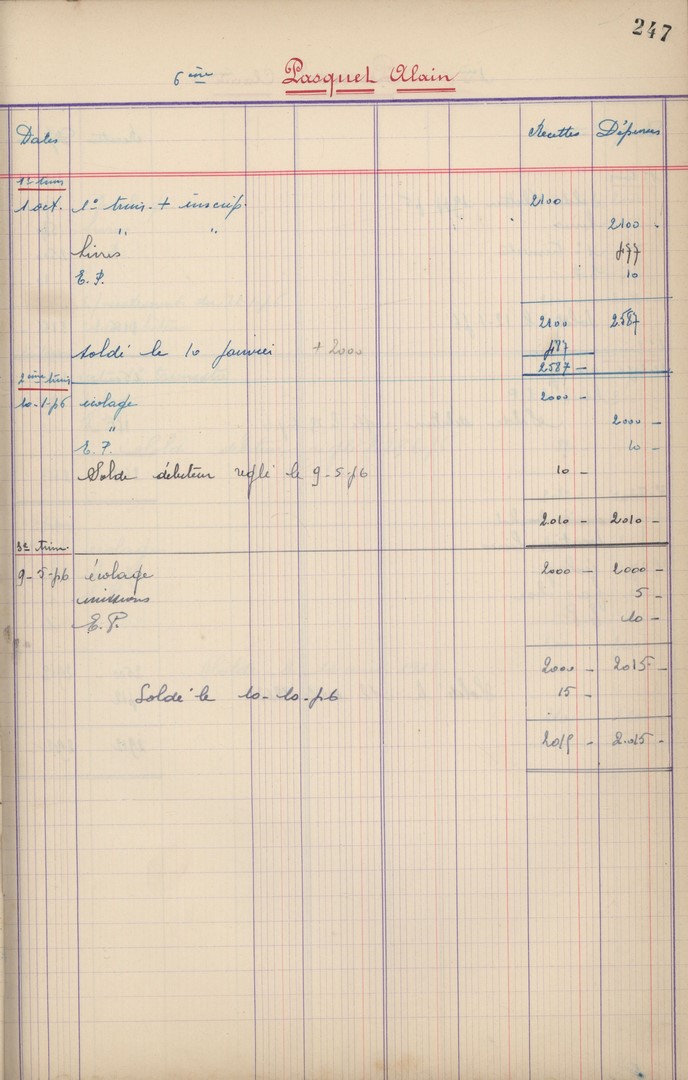 247
6ème Pasquet Alain
Dates Recettes Dépenses
1er trim
1 oct. 1er trim. + inscrip. 2100
" " 2100 -
Livres 477
E.P. 10
2100 2587
Soldé le 10 Janvier + 2000 487
2587 -
2ème trim
10-1-56 écolage 2000 -
" 2000 -
E.P. 10 -
Solde débiteur reglé le 9-5-56 10 -
2010 - 2010 -
3e trim.
9-5-56 écolage 2000 - 2000 -
missions 5 -
E.P. 10 -
2000 - 2015 -
Soldé le 10-10-56 15 -
2015 - 2015 -